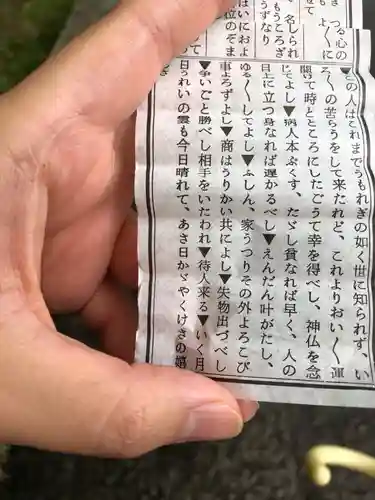 つる心の
よ〱に
さ
せて
名しられ
もうころざ
うずなり
はいにおよ
位のぞま
って
▼この人はこれまでうもれぎの如く世に知られず、い
ろ〱の苦らうをして来たれど、これよりおい〱運
開け時とところにしたごうて幸を得べし、神仏を念
じてよし▼病人本ぷくす、たゞし貧なれば早く、人の
目上に立つ身なれば遅かるべし▼えんだん叶がたし、
ゆる〱してよし▼ふしん、家うつりその外よろこび
事よろずよし▼商はうりかい共によし▼失物出づべし
▼争いごと勝べし相手をいたわれ▼待人来る▼いく月
日うれいの雲も今日晴れて、あさ日かゞやくけさの嬉
さ